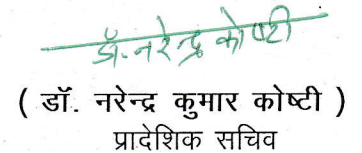 डॉ. नरेन्द्र कोष्टी
( डॉ. नरेन्द्र कुमार कोष्टी )
प्रादेशिक सचिव